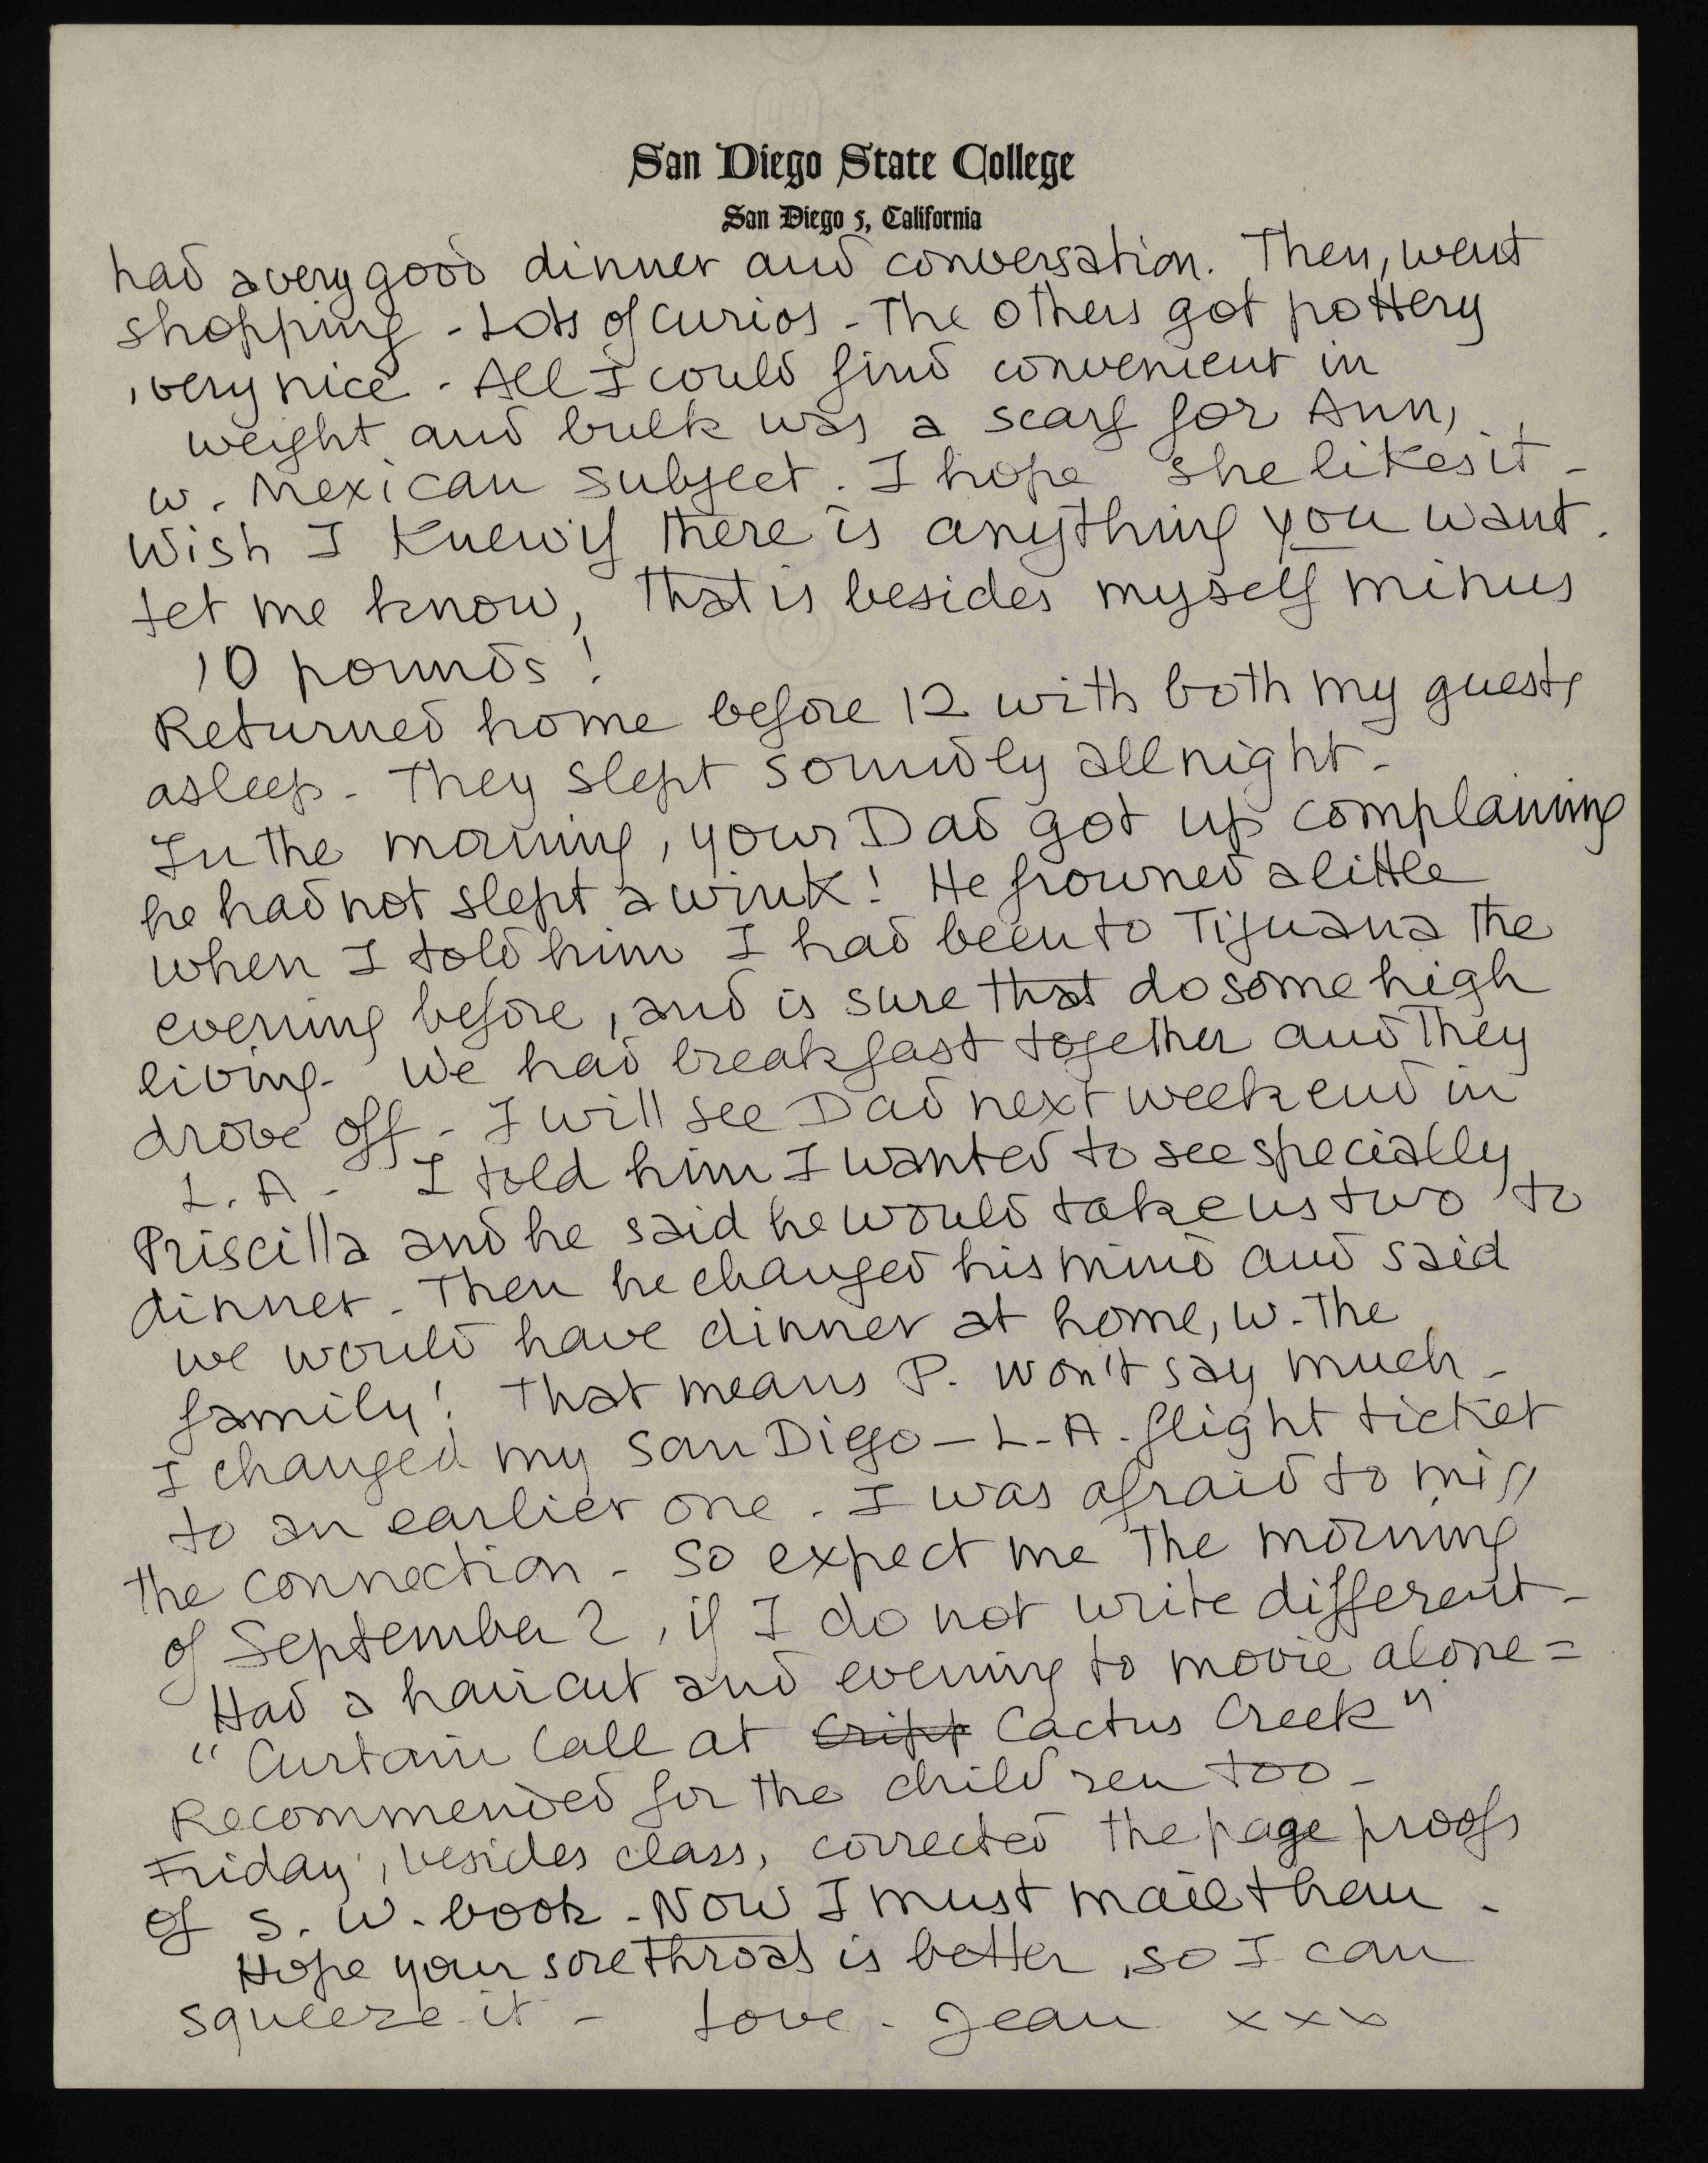 San Diego State College
San Diego 5, California
had a very good dinner and conversation. Then, went
shopping - Lots of curios - The others got pottery
, very nice - All I could find convenient in
weight and bulk was a scarf for Ann,
w. Mexican subject. I hope she likes it -
Wish I knew if there is anything you want.
Let me know, that is besides myself minus
10 pounds!
Returned home before 12 with both my guests
asleep - They slept soundly all night -
In the morning, your Dad got up complaining
he had not slept a wink! He frowned a little
when I told him I had been to Tijuana the
evening before, and is sure that do some high
living - We had breakfast together and they
drove off - I will see Dad next weekend in
L. A - I told him I wanted to see specially
Priscilla and he said he would take us two to
dinner - Then he changed his mind and said
we would have dinner at home, w. the
family! That means P. won't say much -
I changed my San Diego - L. A. flight ticket
to an earlier one - I was afraid to miss
the connection - So expect me the morning
of September 2, if I do not write different -
Had a haircut and evening to movie alone =
"Curtain Call at Cripp Cactus Creek"
Recommended for the children too -
Friday, besides class, corrected the page proofs
of S. W. book - Now I must mail them -
Hope your sore throat is better, so I can
squeeze it - Love - Jean xxx